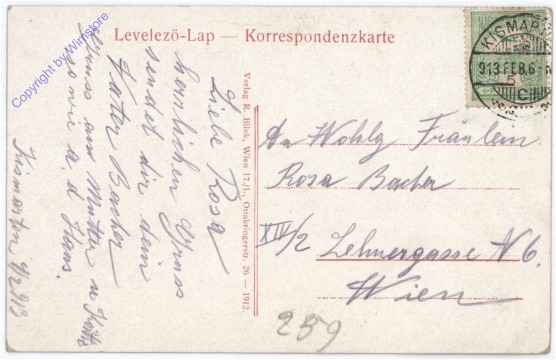 Levelező-Lap — Korrespondenzkarte
Copyright by Wirnstore
KISMART
913 FEB. 6
C
5
Verlag R. Bilek, Wien 17./1., Ottakringerstr. 26 — 1912.
Liebe Rosa
herzlichen Gruss
sendet dir dein
Vater Bacher
Gruss aus Mutter u.
sowie a. d. Hans.
Kismarton 6/2 913
An Wohlg Fräulein
Rosa Bacher
XIV/2 Lehnergasse N 6.
Wien
259